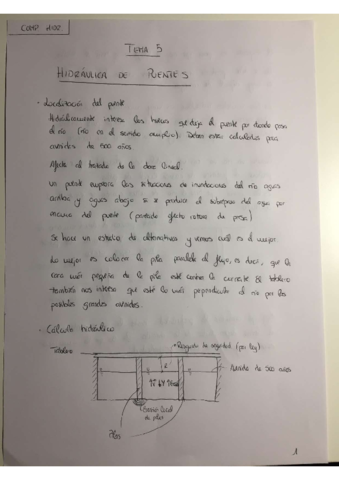 TEMA 5
HIDRÁULICA DE PUENTES
· Localización del puente
Hidráulicamente interesa los huecos que deje el puente por donde pasa
el río (río es el sentido amplio). Deben estar calculados para
avenidas de 500 años.
Afecta al trazado de la obra lineal.
un puente empeora las situaciones de inundaciones del río aguas
arriba y aguas abajo si se produce el del agua por
encima del puente (efecto rotura de presa)
Se hace un estudio de alternativas y vemos cuál es el mejor
Lo mejor es colocar la pila paralela al flujo, es decir, que la
cara más pequeña de la pila esté contra la corriente. El tablero
también nos interesa que esté lo más perpendicular al río por las
posibles grandes avenidas.
· Cálculo hidráulico
Tablero
Resguardo de seguridad (por ley)
Avenida de 500 años
Erosión local
de pilas
Pilas
1